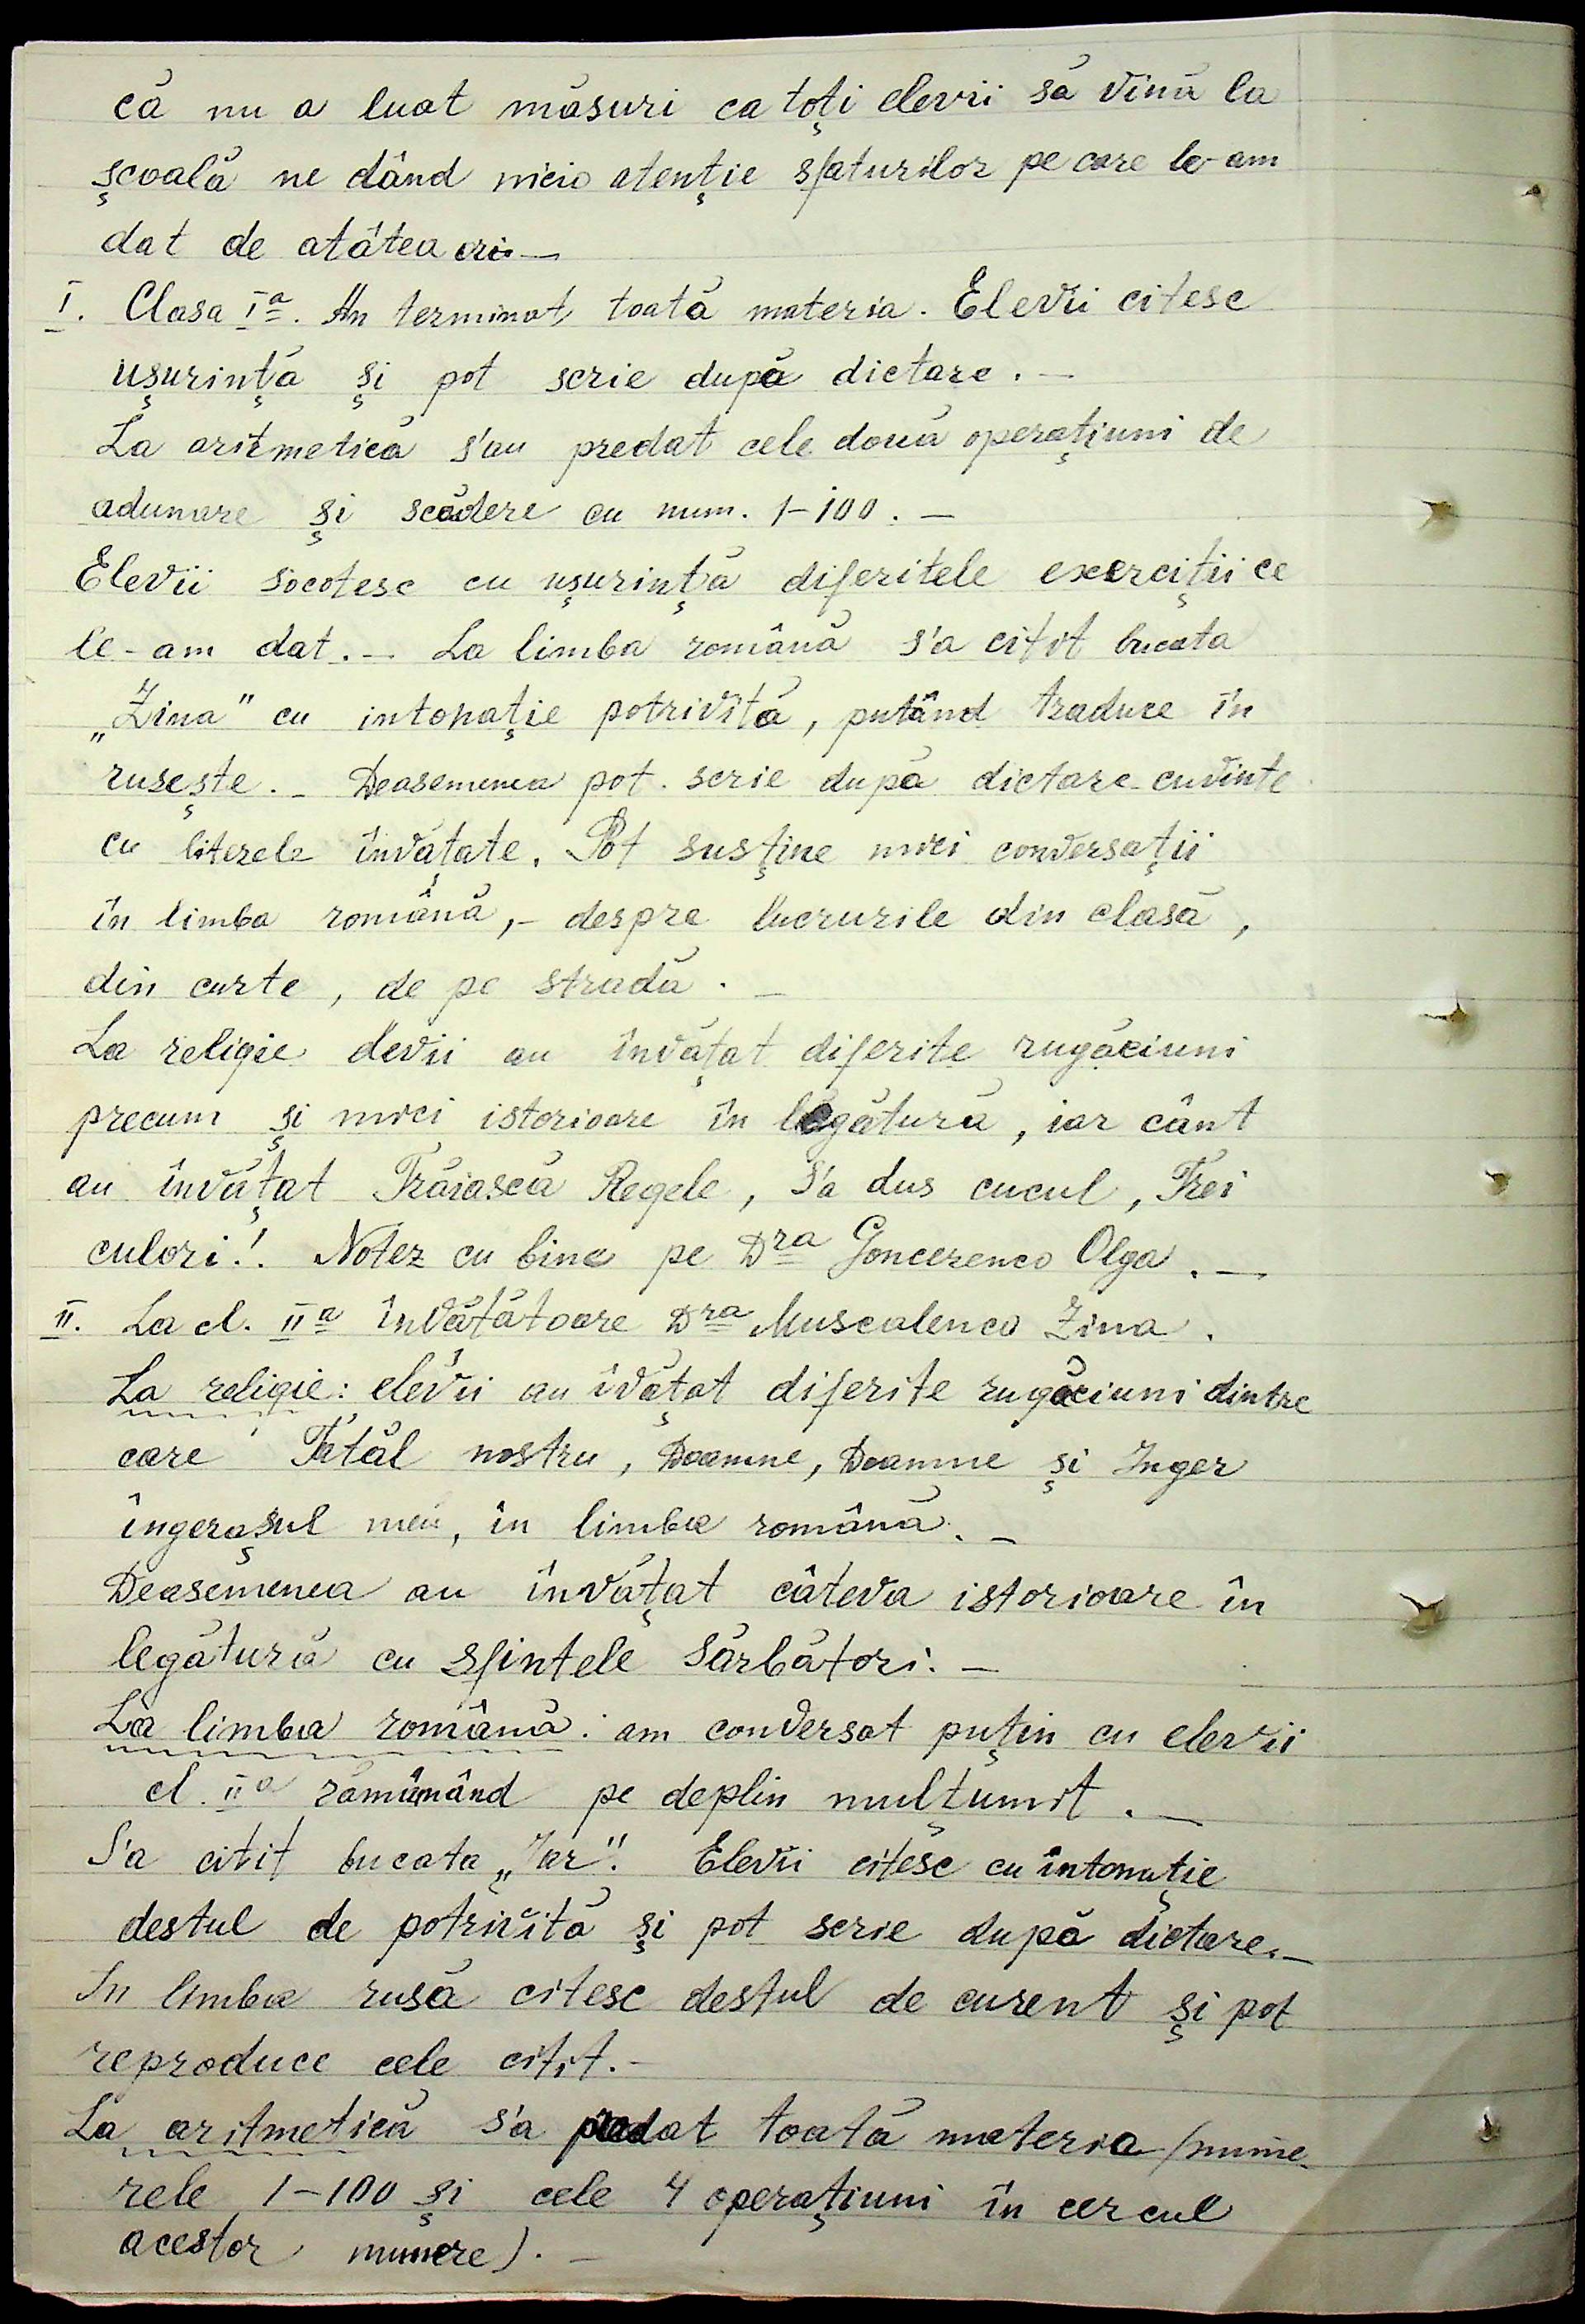 că nu a luat măsuri ca toți elevii să vină la
școală ne dând nicio atenție sfaturilor pe care le-am
dat de atâtea ori—
I. Clasa Iª. Au terminat toată materia. Elevii citesc
ușurință și pot scrie după dictare.—
La aritmetică s'au predat cele două operațiuni de
adunare și scădere cu num. 1-100.—
Elevii socotesc cu ușurință diferitele exerciții ce
le-am dat.— La limba română s'a citit bucata
„Zina" cu intonație potrivită, putând traduce în
rusește.— Deasemenea pot scrie după dictare cuvinte
cu literele învățate. Pot susține mici conversații
în limba română,- despre lucrurile din clasă,
din curte, de pe stradă.—
La religie elevii au învățat diferite rugăciuni
precum și mici istorioare în legătură, iar cânt
au învățat Trăiască Regele, S'a dus cucul, Trei
culori!. Notez cu bine pe Dra Goncerenco Olga.—
II. La cl. IIª învățătoare Dra Muscalenco Zina.
La religie: elevii au ivățat diferite rugăciuni dintre
care Tatăl nostru, Doamne, Doamne și Inger
îngerașul meu, în limba română.—
Deasemenea au învățat câteva istorioare în
legătură cu Sfintele Sărbători.—
La limba română: am conversat puțin cu elevii
cl. IIª rămânând pe deplin mulțumit.—
S'a citit bucata „Iar". Elevii citesc cu întonație
destul de potrivită și pot scrie după dictare.—
In limba rusă citesc destul de curent și pot
reproduce cele citit.-
La aritmetică s'a predat toată materia (nume-
rele 1-100 și cele 4 operațiuni în cercul
acestor numere).—